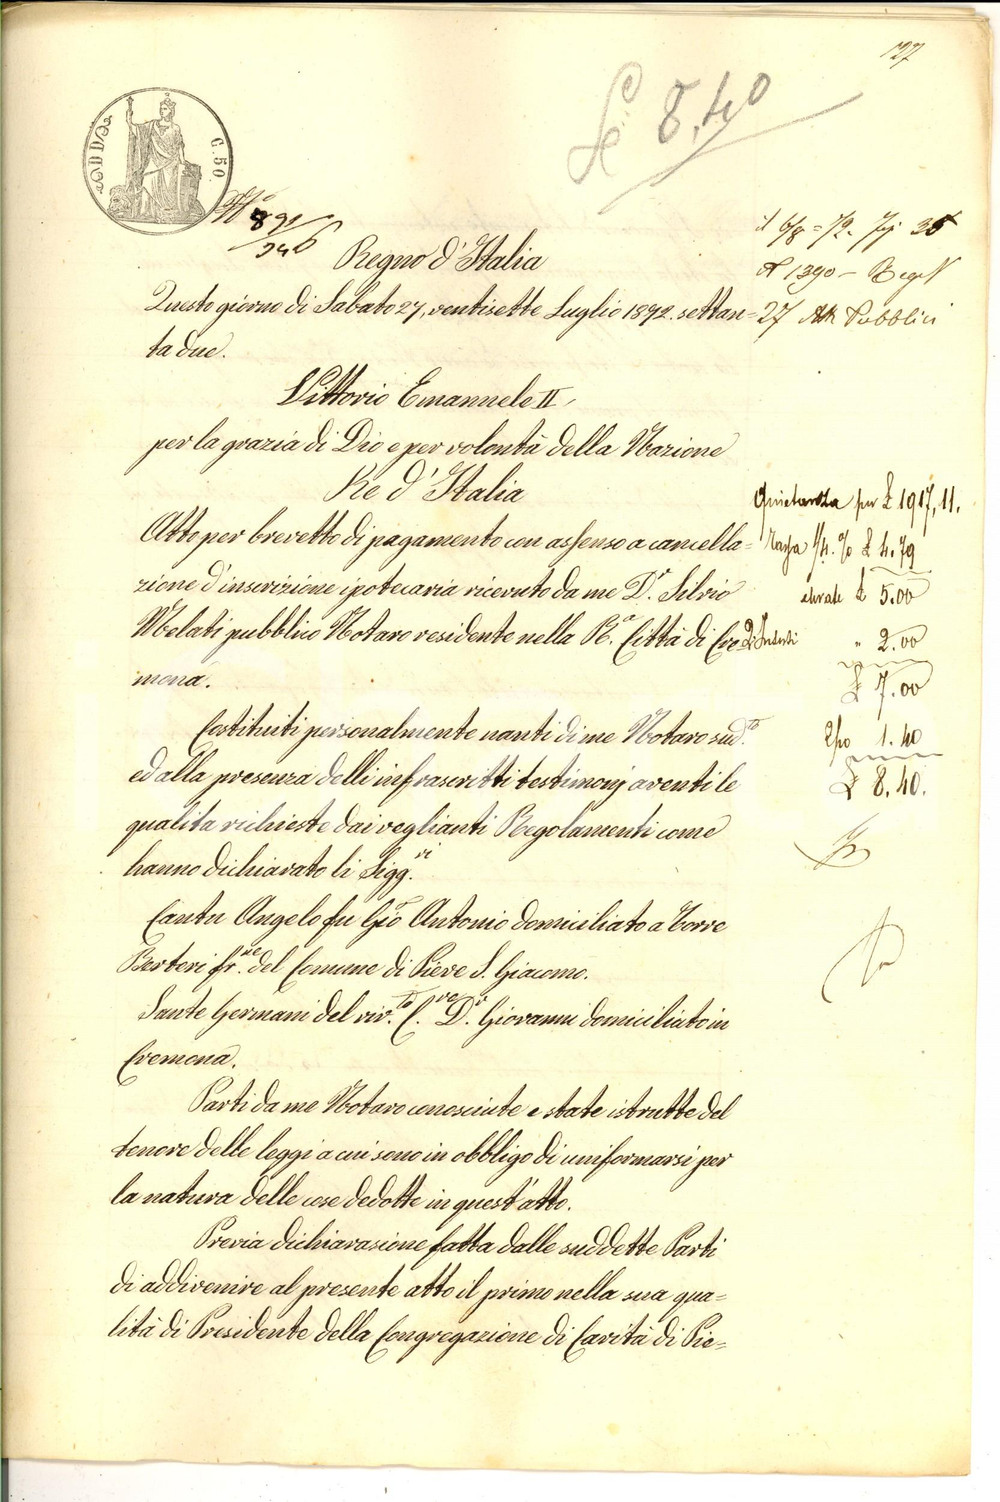 127
£ 8,40
C. 50.
N.º 891
246
Regno d'Italia
Questo giorno di Sabato 27, ventisette Luglio 1872. settan=
ta due.
Vittorio Emannele II
per la grazia di Dio e per volontà della Nazione
Re d'Italia
Atto per brevetto di pagamento con assenso a cancella=
zione d'inscrizione ipotecaria ricevuto da me D.r Silvio
Melati pubblico Notaro residente nella R.a Città di Cre=
mona.
Costituiti personalmente nanti di me Notaro sud.to
ed alla presenza delli infrascritti testimonj aventi le
qualita richieste dai veglianti Regolamenti come
hanno dichiarato li Sigg.ri
Cantu Angelo fu Gio Antonio domiciliato a Torre
Berteri fr.ne del Comune di Pieve S. Giacomo.
Sante Germani del viv.te C.re D.r Giovanni domiciliato in
Cremona.
Parti da me Notaro conosciute e state istrutte del
tenore delle leggi a cui sono in obbligo di uniformarsi per
la natura delle cose dedotte in quest'atto.
Previa dichiarasione fatta dalle suddette Parti
di addivenire al presente atto il primo nella sua qua=
lità di Presidente della Congregazione di Carità di Pie=
il 6/8 = 72.
N 1390 - Reg
27 Atti Pubblici
Quietanza per £ 1917,11.
Tassa 1/4 % £ 4.79
elevate £ 5.00
" 2.00
£ 7.00
1.40
£ 8.40.